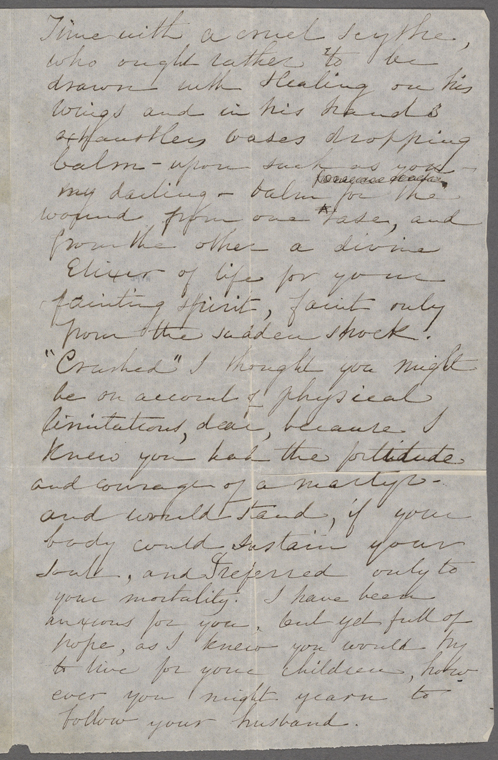 Time with a cruel scythe,
who ought rather to be
drawn with Healing on his
wings and in his hands
exhaustless vases dropping
balm - upon such as you -
my darling - balm for the
wound from one vase, and
from the other a divine
Elixir of life for your
fainting spirit, faint only
from the sudden shock.
"Crushed" I thought you might
be on account of physical
limitations, dear, because I
knew you had the fortitude
and courage of a martyr -
and would stand, if your
body could sustain your
soul, and I referred only to
your mortality. I have been
anxious for you, but yet full of
hope, as I knew you would try
to live for your children, how
ever you might yearn to
follow your husband.